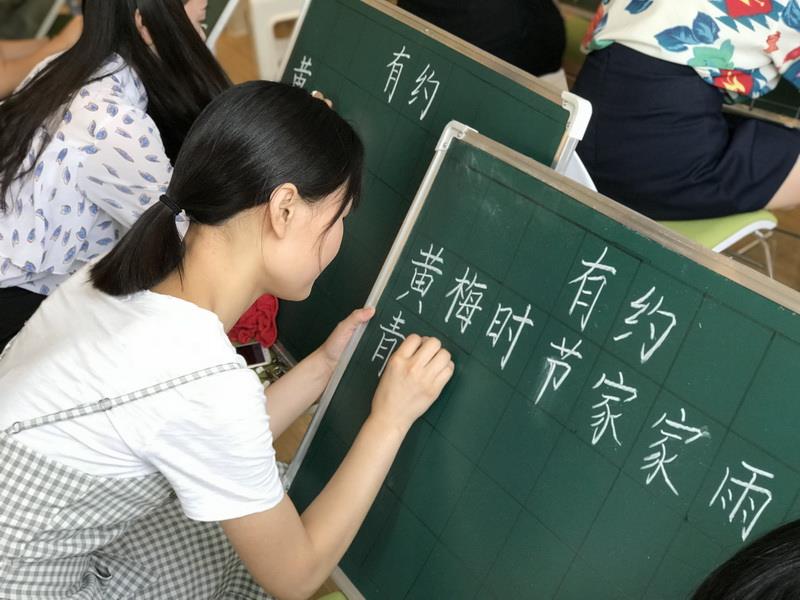 有约
黄
有约
黄梅时节家家雨
青